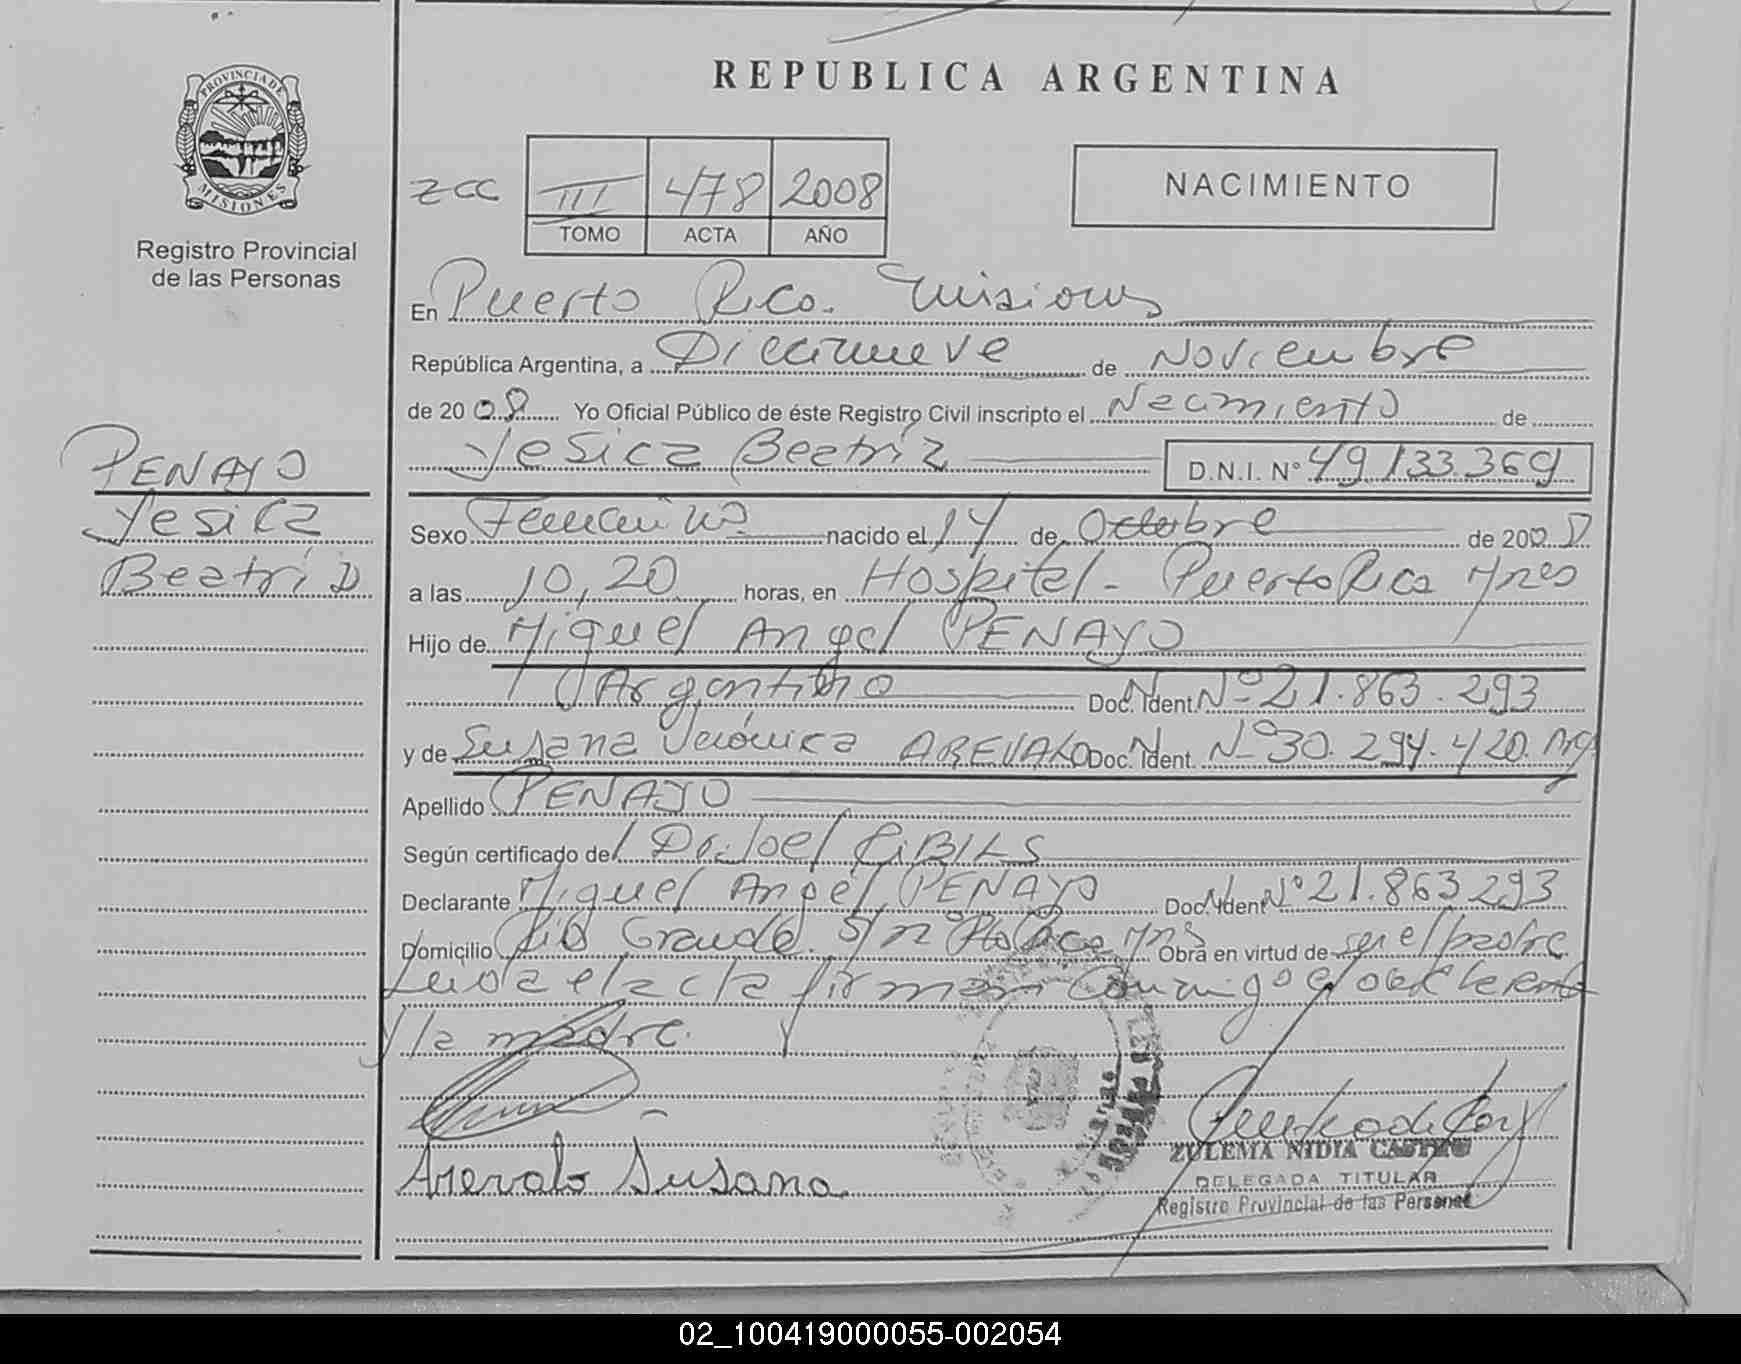 PROVINCIA DE
MISIONES
Registro Provincial
de las Personas
PENAYO
Yesica
Beatriz
REPUBLICA ARGENTINA
III 478 2008
TOMO ACTA AÑO
NACIMIENTO
En Puerto Rico. Misiones
República Argentina, a Diecinueve de Noviembre
de 2008 Yo Oficial Público de éste Registro Civil inscripto el Nacimiento de
Yesica Beatriz D.N.I. N° 49.133.369
Sexo Femenino nacido el 14 de Octubre de 2008
a las 10,20 horas, en Hospital - Puerto Rico Mnes
Hijo de Miguel Angel PENAYO
Argentino Doc. Ident. N° 21.863.293
y de Susana Verónica AREVALO Doc. Ident. N° 30.294.420. Arg
Apellido PENAYO
Según certificado del Dr. Joel CIBILS
Declarante Miguel Angel PENAYO Doc. Ident N° 21.863.293
Domicilio Río Grande s/n Pto Rico Mnes Obra en virtud de ser el padre
Leida el acta firman conmigo el declarante
y la madre.
Arevalo Susana
ZULEMA NIDIA CASTRO
DELEGADA TITULAR
Registro Provincial de las Personas
02_100419000055-002054